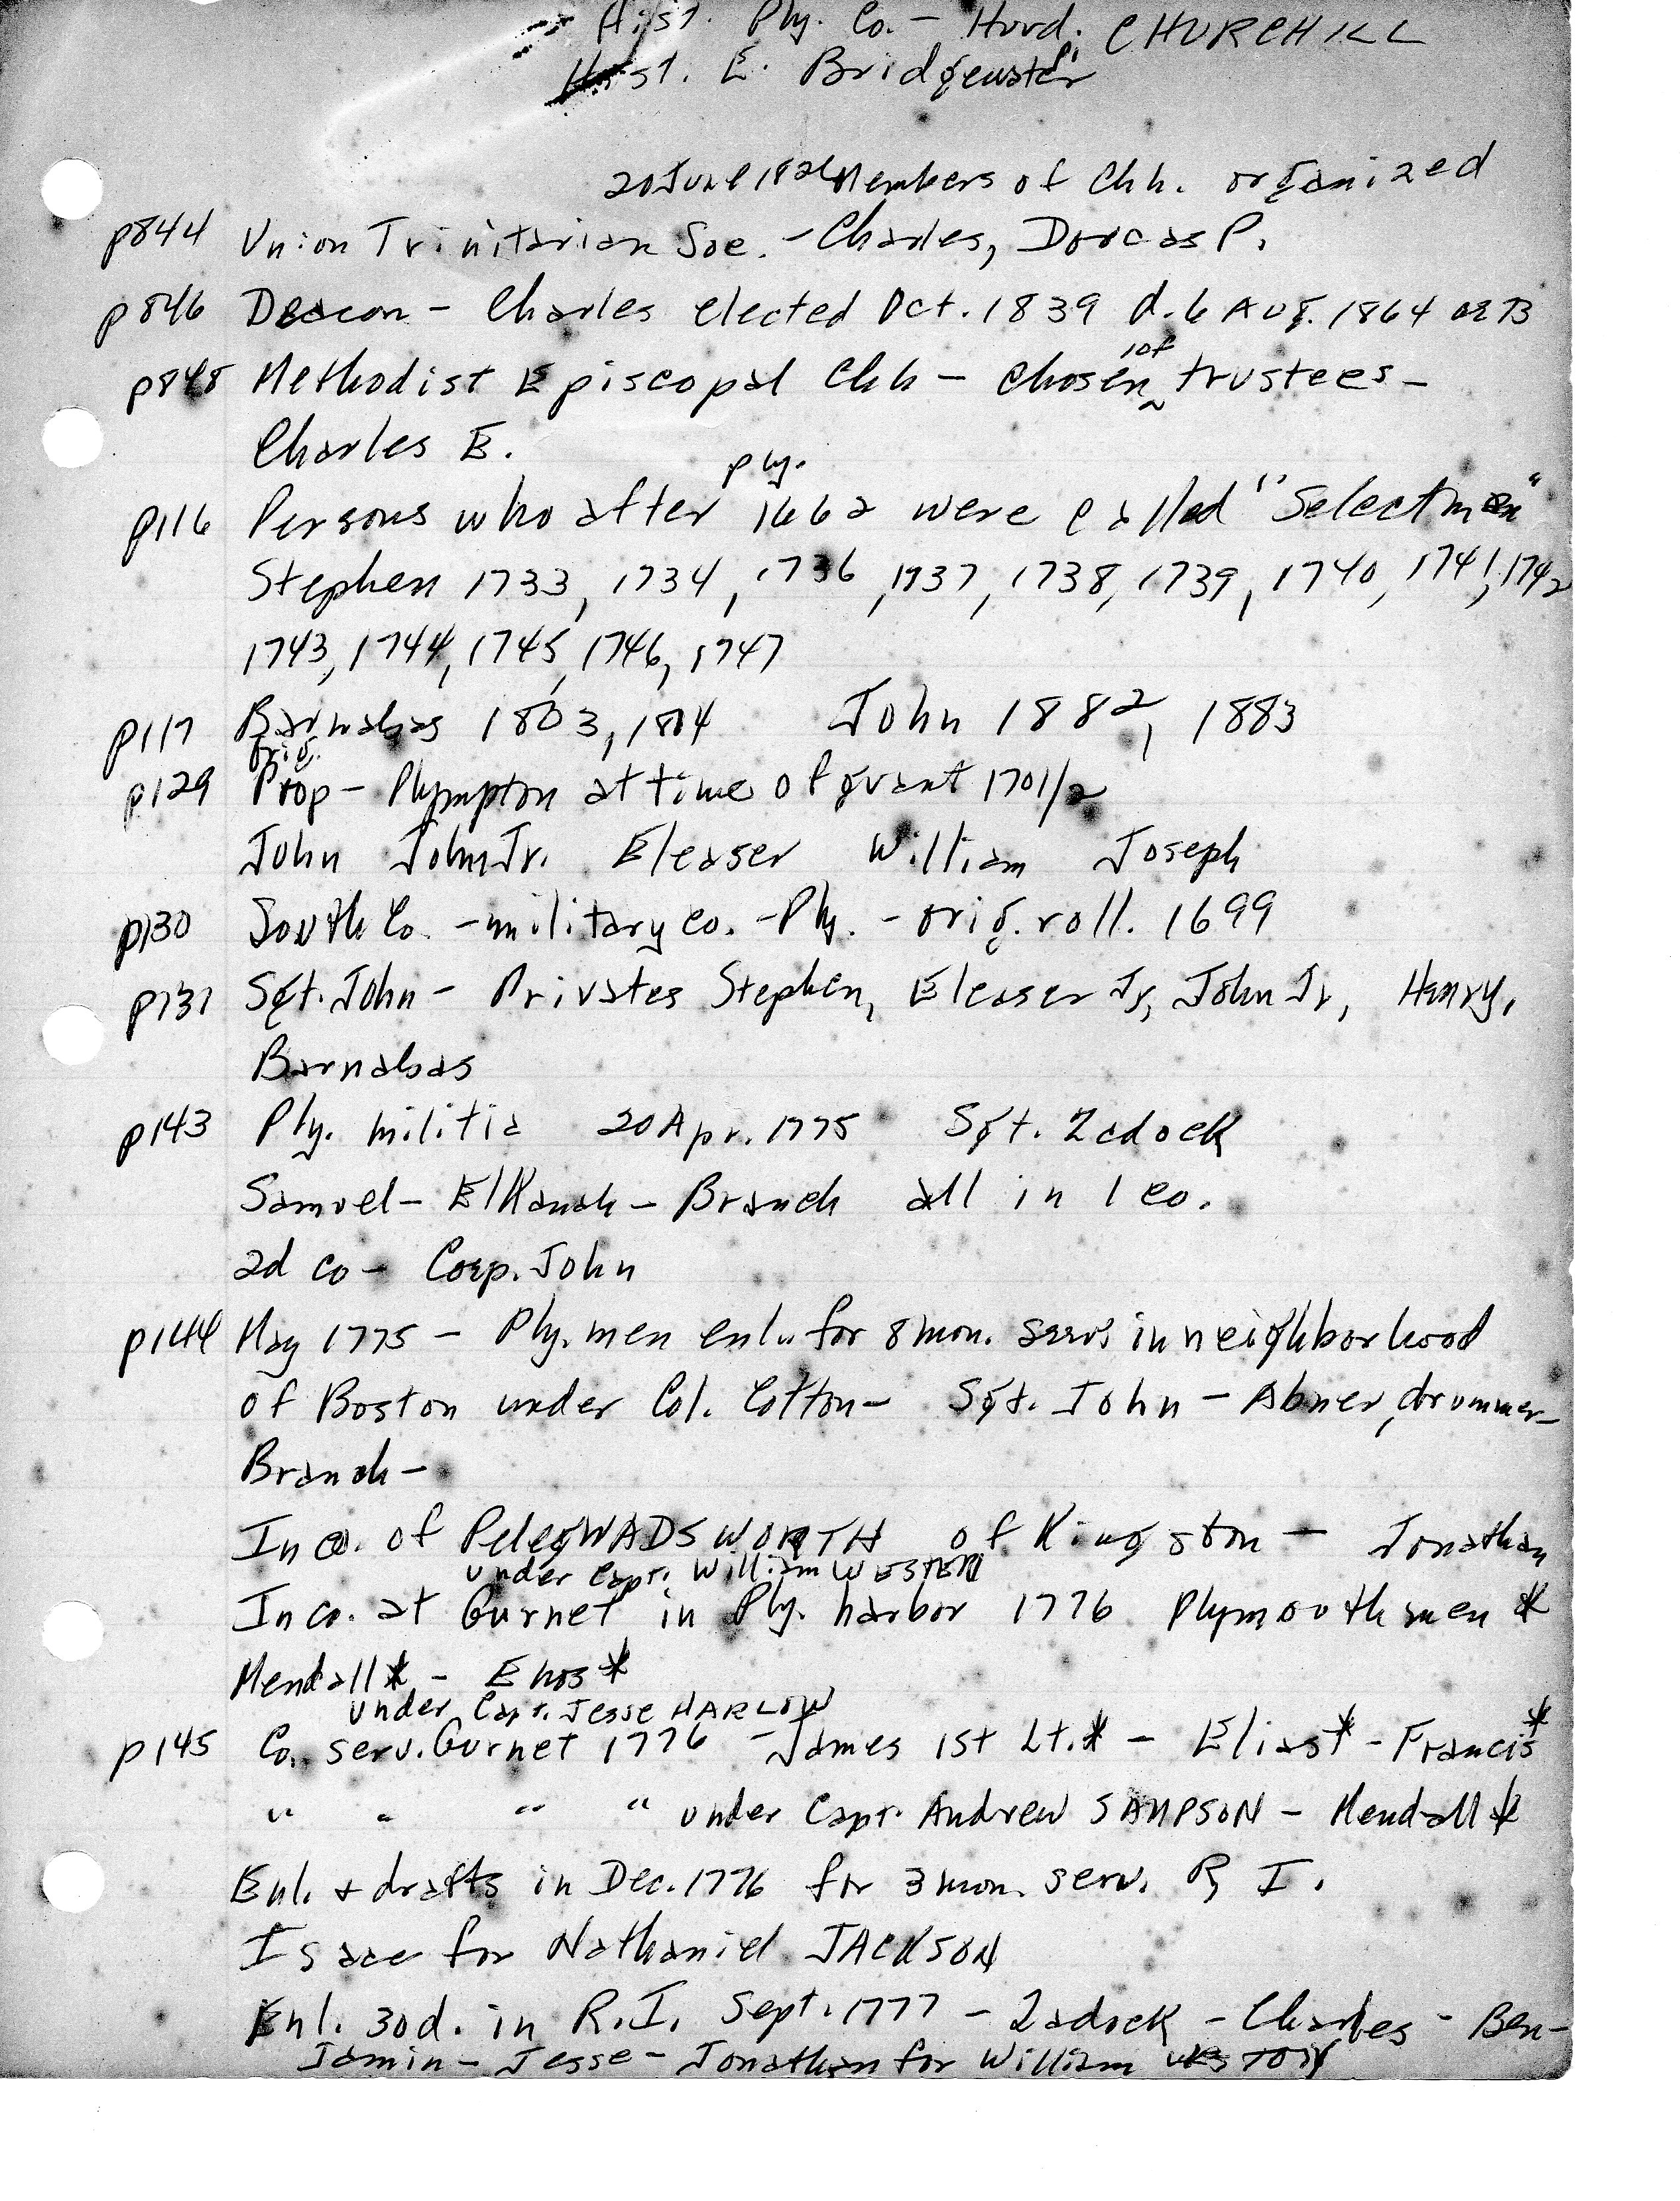 Hist. Ply. Co. - Hurd. CHURCHILL
Hist. E. Bridgewater
20 June 1826 Members of Chh. organized
p844 Union Trinitarian Soc. - Charles, Dorcas P.
p846 Deacon - Charles elected Oct. 1839 d. 6 Aug. 1864 ae 73
1 of
p848 Methodist Episcopal Chh - chosen ^ trustees -
Charles E.
Ply.
p116 Persons who after 1662 were called "Selectmen"
Stephen 1733, 1734, 1736, 1737, 1738, 1739, 1740, 1741, 1742
1743, 1744, 1745, 1746, 1747
p117 Barnabas 1803, 1804 John 1882, 1883
Orig.
p129 Prop - Plympton at time of grant 1701/2
John John Jr. Eleaser William Joseph
p130 South Co. - military co. - Ply. - orig. roll. 1699
p131 Sgt. John - Privates Stephen, Eleaser Jr, John Jr, Henry,
Barnabas
p143 Ply. militia 20 Apr. 1775 Sgt. Zadock
Samuel - Elkanah - Branch all in 1 co.
2d co - Corp. John
p144 May 1775 - Ply. men enl. for 8 mon. serv. in neighborhood
of Boston under Col. Cotton - Sgt. John - Abner, drummer -
Branch -
In co. of Peleg WADSWORTH of Kingston - Jonathan
under Capt. William WESTON
In co. at Gurnet in Ply. harbor 1776 Plymouth men *
Mendall * - Enos *
under Capt. Jesse HARLOW
p145 Co. serv. Gurnet 1776 - James 1st Lt. * - Elias * - Francis *
" " " " under Capt. Andrew SAMPSON - Mendall *
Enl. + drafts in Dec. 1776 for 3 mon. serv. R I.
Isaac for Nathaniel JACKSON
Enl. 30 d. in R.I. Sept. 1777 - Zadock - Charles - Ben-
jamin - Jesse - Jonathan for William WESTON